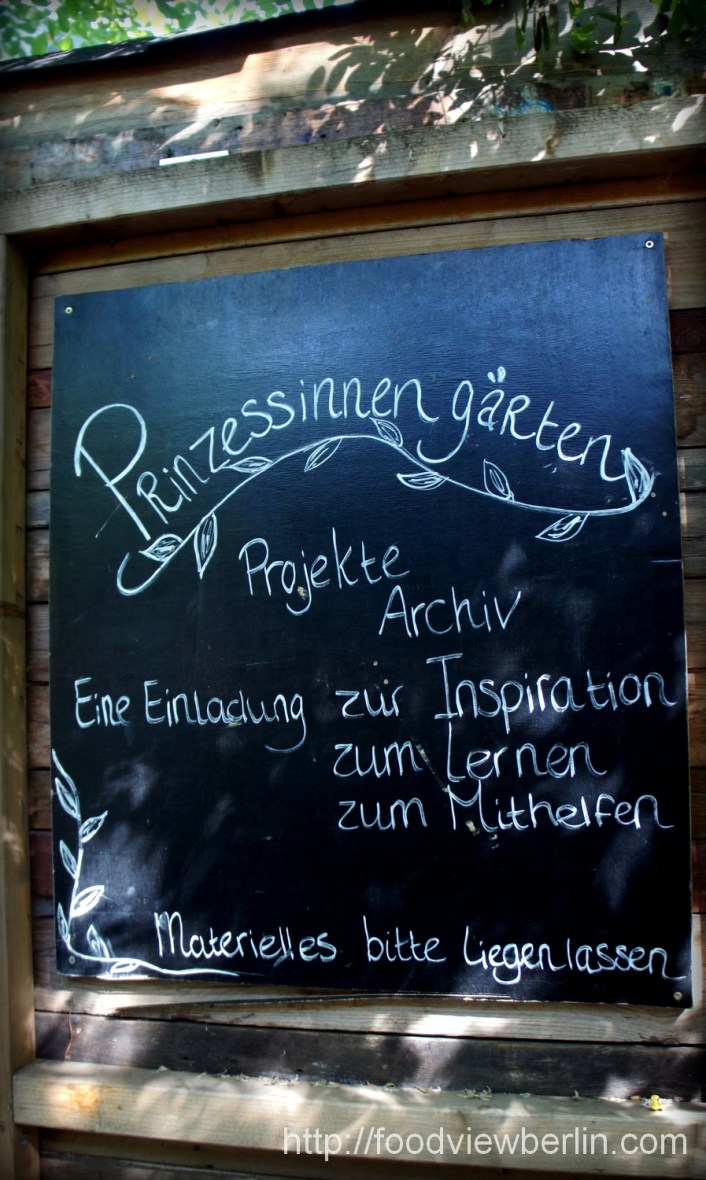 Prinzessinnengärten
Projekte
Archiv
Eine Einladung zur Inspiration
zum Lernen
zum Mithelfen
Materielles bitte liegenlassen
http://foodviewberlin.com